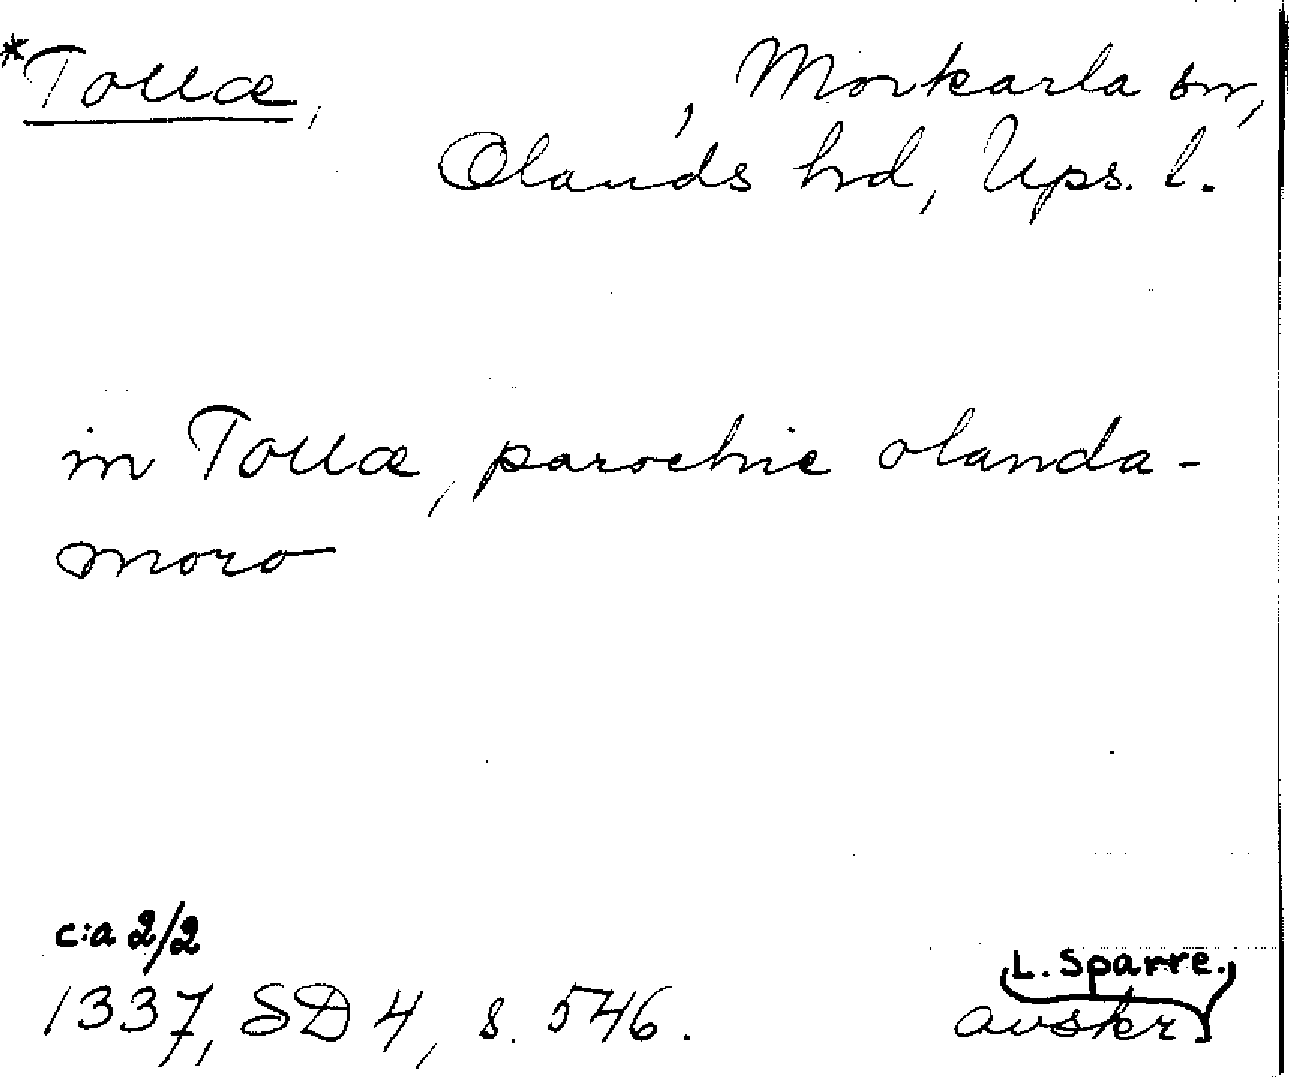 *Tollæ, , Morkarla sn,
Olands hrd, Ups. l.
in Tollæ, parochie olanda-
moro
c:a 2/2
1337, SD 4, s. 546.
(L. Sparre.)
avskr